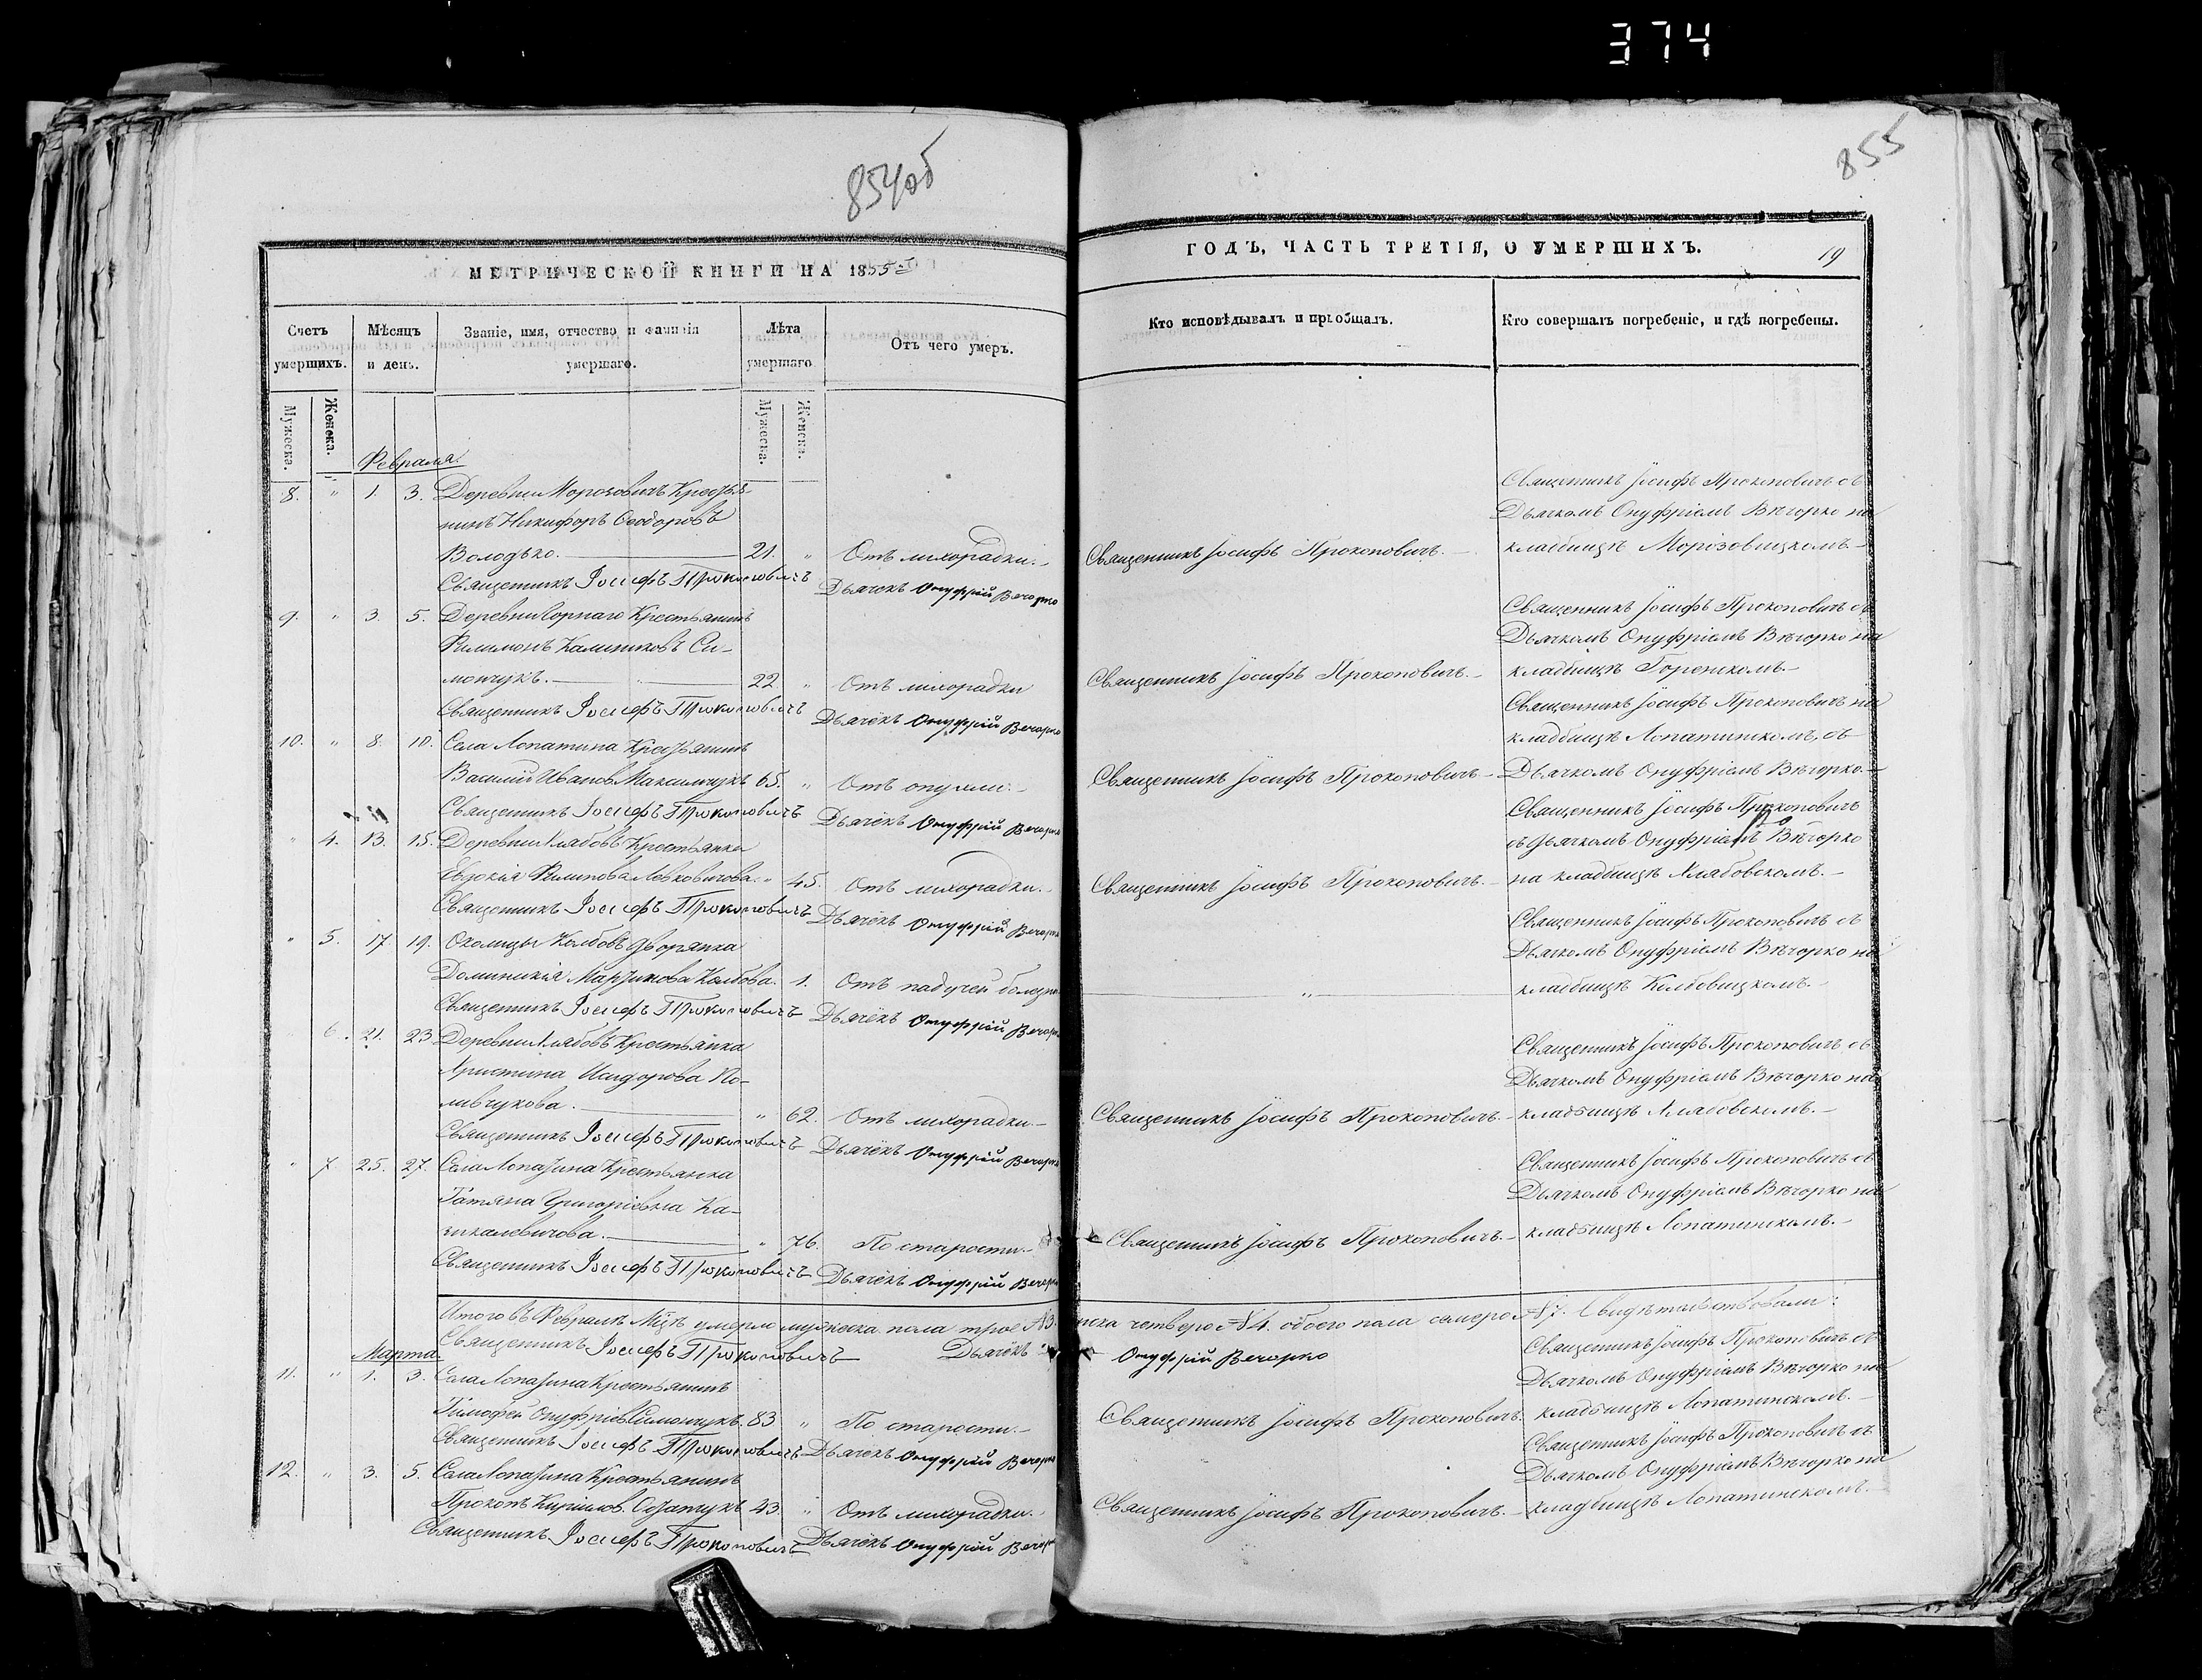 374
854об
855
МЕТРИЧЕСКОЙ КНИГИ НА 1855й
ГОДЪ, ЧАСТЬ ТРЕТІЯ, О УМЕРШИХЪ.
19
Счетъ умершихъ.
Мѣсяцъ и день.
Званіе, имя, отчество и фамилія умершаго.
Лѣта умершаго
Отъ чего умеръ.
Кто исповѣдывалъ и пріобщалъ.
Кто совершалъ погребеніе, и гдѣ погребены.
Мужеска.
Женска.
Мужеска.
Женска.
Февраля.
8. " 1. 3. Деревни Морозовичъ Крестья-
нинъ Никифоръ Ѳеодоровъ
Володько. 21. " Отъ лихорадки.
Священникъ Іосифъ Прокоповичъ.
Священникъ Іосифъ Прокоповичъ съ
Дьячкомъ Онуфріемъ Вѣчорко на
кладбищѣ Морозовицкомъ.
Священникъ Іосифъ Прокоповичъ Дьячекъ Онуфрій Вечорко
9. " 3. 5. Деревни Горнаго Крестьянинъ
Филимонъ Калиниковъ Си-
мончукъ. 22 " Отъ лихорадки
Священникъ Іосифъ Прокоповичъ.
Священникъ Іосифъ Прокоповичъ съ
Дьячкомъ Онуфріемъ Вѣчорко на
кладбищѣ Горенскомъ.
Священникъ Іосифъ Прокоповичъ Дьячекъ Онуфрій Вечорко
10. " 8. 10. Села Лопатина Крестьянинъ
Василій Ивановъ Максимчукъ 65. " Отъ опухли.
Священникъ Іосифъ Прокоповичъ
Священникъ Іосифъ Прокоповичъ на
кладбищѣ Лопатинскомъ, съ
Дьячкомъ Онуфріемъ Вѣчорко.
Священникъ Іосифъ Прокоповичъ Дьячекъ Онуфрій Вечорко
" 4. 13. 15. Деревни Крестьянка
Евдокія Филипова Левковичова " 45. Отъ лихорадки.
Священникъ Іосифъ Прокоповичъ.
Священникъ Іосифъ Прокоповичъ
съ Дьячкомъ Онуфріемъ Вѣчорко
на кладбищѣ
Священникъ Іосифъ Прокоповичъ Дьячекъ Онуфрій Вечорко
" 5. 17. 19. Околицы Колбовъ Дворянка
Доминикія Мартинова Колбова. 1. Отъ падучей болезни
"
Священникъ Іосифъ Прокоповичъ съ
Дьячкомъ Онуфріемъ Вѣчорко на
кладбищѣ Колбовицкомъ.
Священникъ Іосифъ Прокоповичъ Дьячекъ Онуфрій Вечорко
6. 21. 23. Деревни Крестьянка
Христина Исидорова По-
ливчукова. " 62. Отъ лихорадки.
Священникъ Іосифъ Прокоповичъ.
Священникъ Іосифъ Прокоповичъ съ
Дьячкомъ Онуфріемъ Вѣчорко на
кладбищѣ
Священникъ Іосифъ Прокоповичъ Дьячекъ Онуфрій Вечорко
" 7. 25. 27. Села Лопатина Крестьянка
Татяна Григоріевна Ка-
" 76. По старости.
Священникъ Іосифъ Прокоповичъ.
Священникъ Іосифъ Прокоповичъ съ
Дьячкомъ Онуфріемъ Вѣчорко на
кладбищѣ Лопатинскомъ.
Священникъ Іосифъ Прокоповичъ Дьячекъ Онуфрій Вечорко
Итого въ Февралѣ Мцѣ умерло мужеска пола трое №3. нска четверо №4. обоего пола семеро №7. Свидѣтельствовали:
Священникъ Іосифъ Прокоповичъ Дьячекъ Онуфрій Вечорко
Марта.
11. " 1. 3. Села Лопатина Крестьянинъ
Тимофей Онуфріевъ Симончукъ. 83 " По старости.
Священникъ Іосифъ Прокоповичъ.
Священникъ Іосифъ Прокоповичъ съ
Дьячкомъ Онуфріемъ Вѣчорко на
кладбищѣ Лопатинскомъ.
Священникъ Іосифъ Прокоповичъ Дьячекъ Онуфрій Вечорко
12. " 3. 5. Села Лопатина Крестьянинъ
Прокопъ Кириловъ 43. " Отъ лихорадки.
Священникъ Іосифъ Прокоповичъ.
Священникъ Іосифъ Прокоповичъ съ
Дьячкомъ Онуфріемъ Вѣчорко на
кладбищѣ Лопатинскомъ.
Священникъ Іосифъ Прокоповичъ Дьячекъ Онуфрій Вечорко